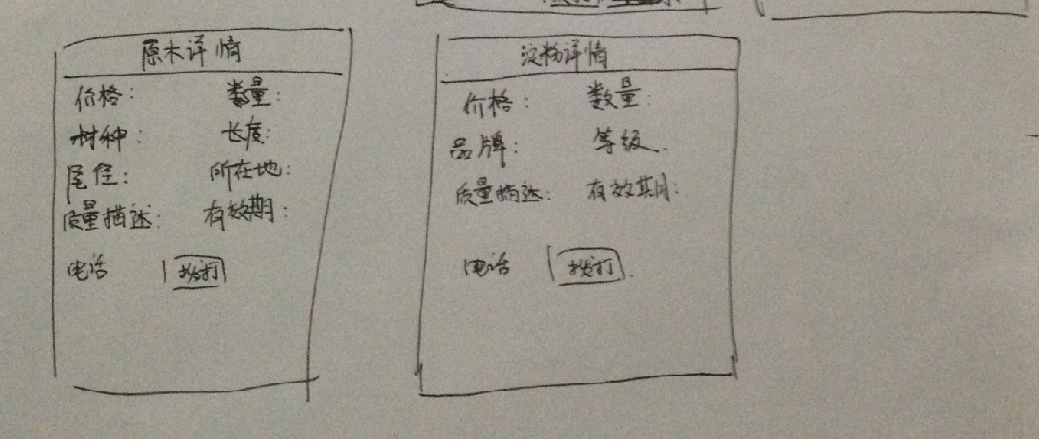 原木详情
价格： 数量：
材种： 长度：
尾径： 所在地：
质量描述： 有效期：
电话 拨打
淀粉详情
价格： 数量：
品牌： 等级
质量描述： 有效期：
电话 拨打